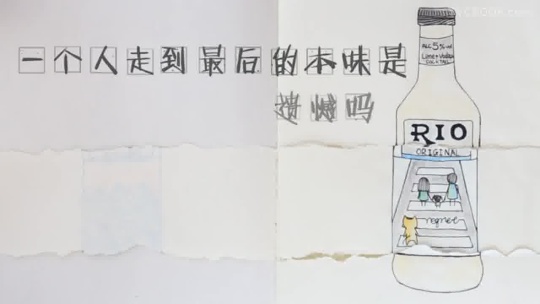 一个人走到最后的本味是
遗憾吗
ALC.5%vol
Lime+Vodka
COCKTAIL
RIO
ORIGINAL
regret